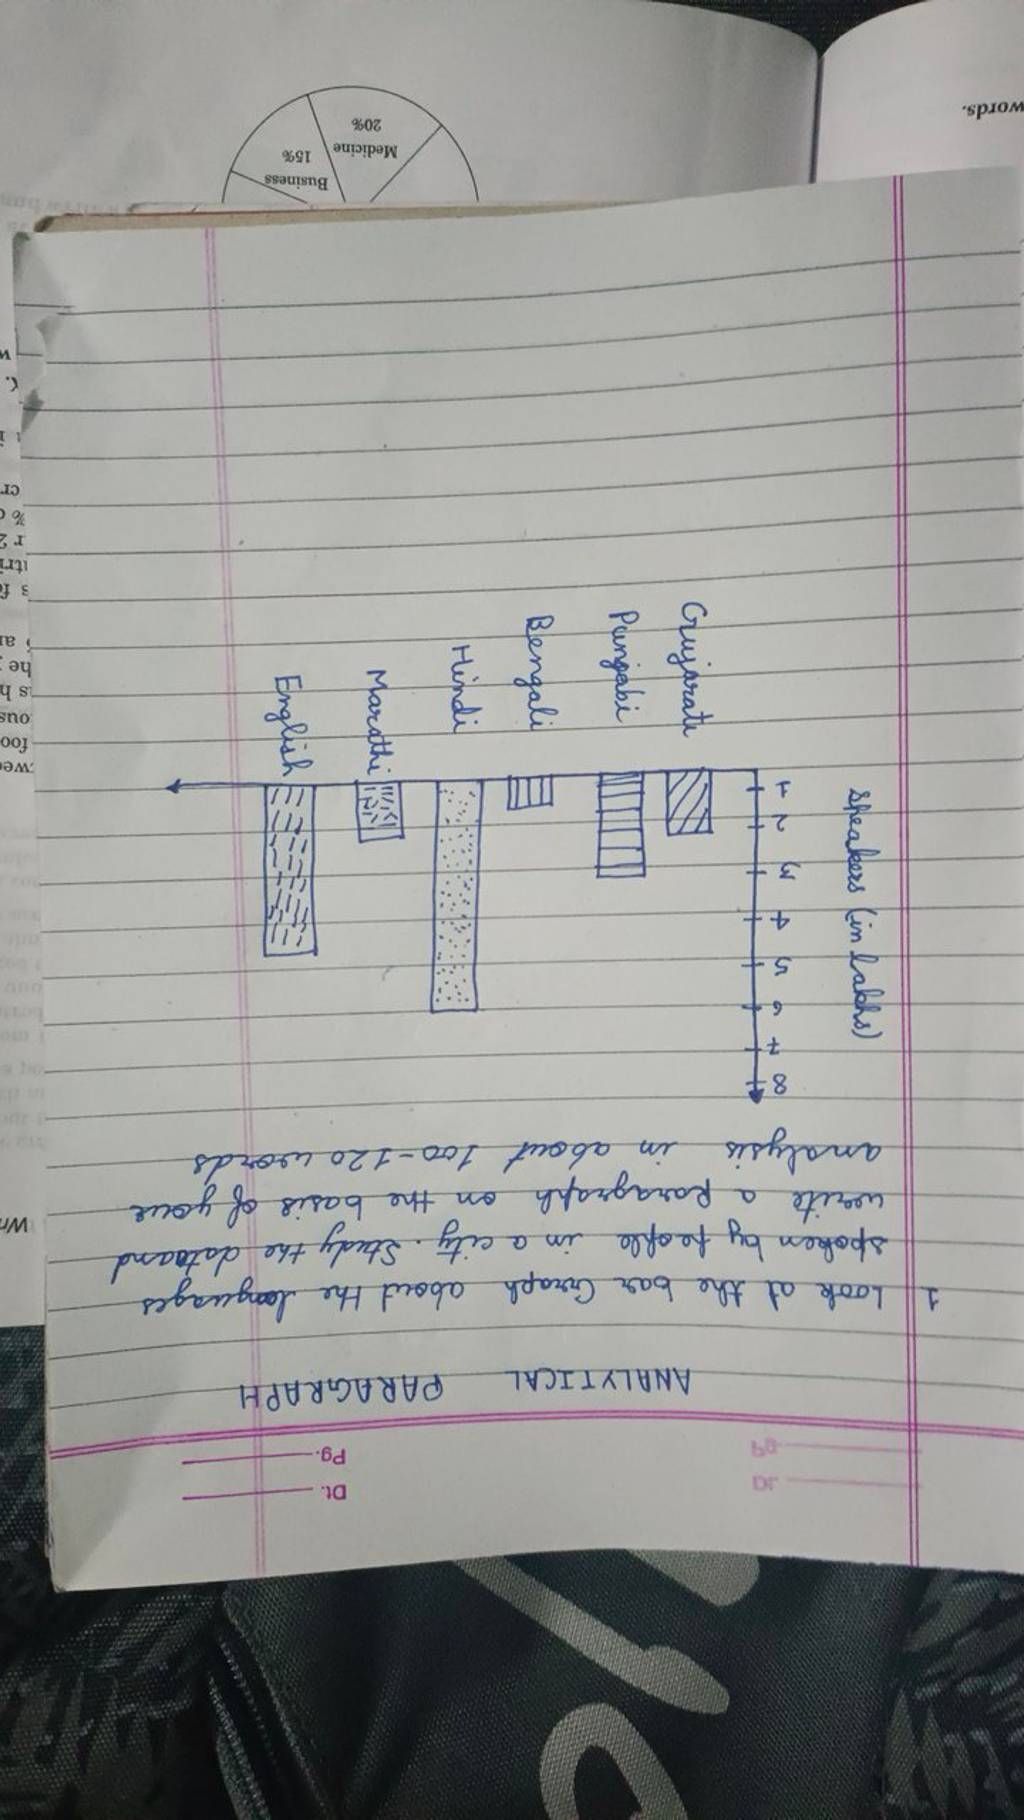 Dt.
Pg.
ANALYTICAL PARAGRAPH
1 Look at the bar Graph about the languages
spoken by people in a city. Study the data and
write a paragraph on the basis of your
analysis in about 100-120 words
Speakers (in lakhs)
8
7
6
5
4
3
2
1
Gujarati
Punjabi
Bengali
Hindi
Marathi
English
Business
15%
Medicine
20%
words.